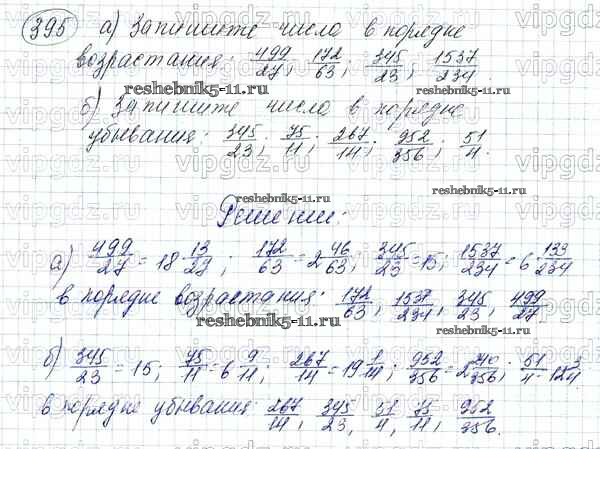 395 а) Запишите числа в порядке
возрастания: 499/27; 172/63; 345/23; 1537/234.
reshebnik5-11.ru
б) Запишите числа в порядке
убывания: 345/23; 75/11; 267/14; 952/356; 51/4.
reshebnik5-11.ru
reshebnik5-11.ru
Решение:
а) 499/27 = 18 13/27; 172/63 = 2 46/63; 345/23 = 15; 1537/234 = 6 133/234
в порядке возрастания: 172/63, 1537/234, 345/23, 499/27.
reshebnik5-11.ru
б) 345/23 = 15; 75/11 = 6 9/11; 267/14 = 19 1/14; 952/356 = 2 240/356; 51/4 = 12 3/4
в порядке убывания: 267/14, 345/23, 51/4, 75/11, 952/356.
reshebnik5-11.ru